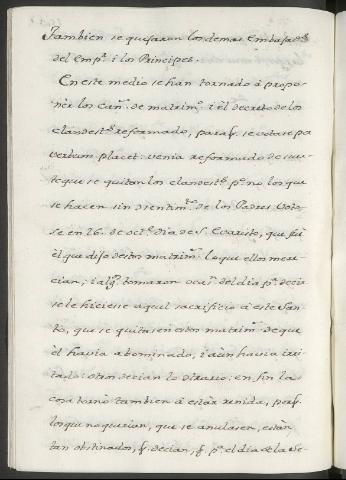 Tambien se quejaron los demas Embaxad.es
del Emp.r i los Principes.
En este medio se han tornado à propo-
nèr los Can.s de matrim.o i el decreto de los
clandest.s reformado, para q. se votase pa
verbum placet. venia reformado de suer-
te que se quitan los clandest.s p.o no los que
se hacen sin sientim.to de los Padres. Voto-
se en 26. de oct.e dia de S. Evaristo, que fuè
èl que dijo destos matrim.s lo que ellos mere-
cian; i alg.s tomaron ocas.n del dia p.a decir
se le hiciese aquel sacrificio à este San-
to, que se quitasen estos matrim.s de que
èl havia abominado, i aùn havia irri-
tado: otros decian lo contrario: en fin la
cosa tornò tambien à estàr reñida, porq.
los que no querian, que se anulasen, estàn
tan obstinados, q. decian, q. p.a el dia de la Se-